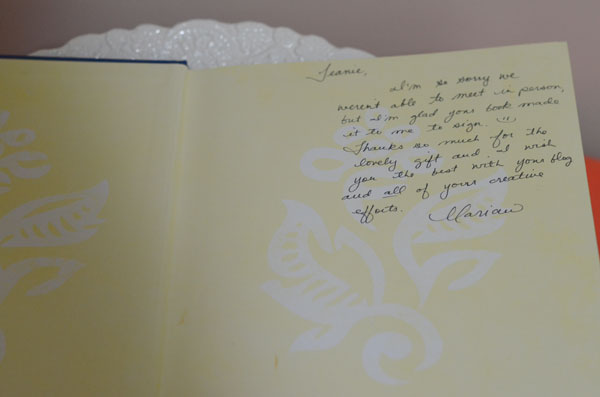 Jeanie,
I'm so sorry we
weren't able to meet in person,
but I'm glad your book made
it to me to sign. :)
Thanks so much for the
lovely gift and I wish
you the best with your blog
and all of your creative
efforts.
Marian